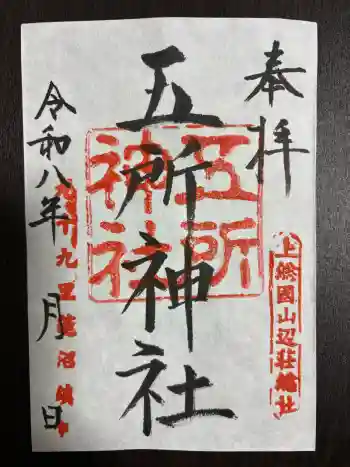 奉拝
上総國山辺荘總社
五所神社
五所神社
令和八年 月 日
九十九里蓮沼鎮守